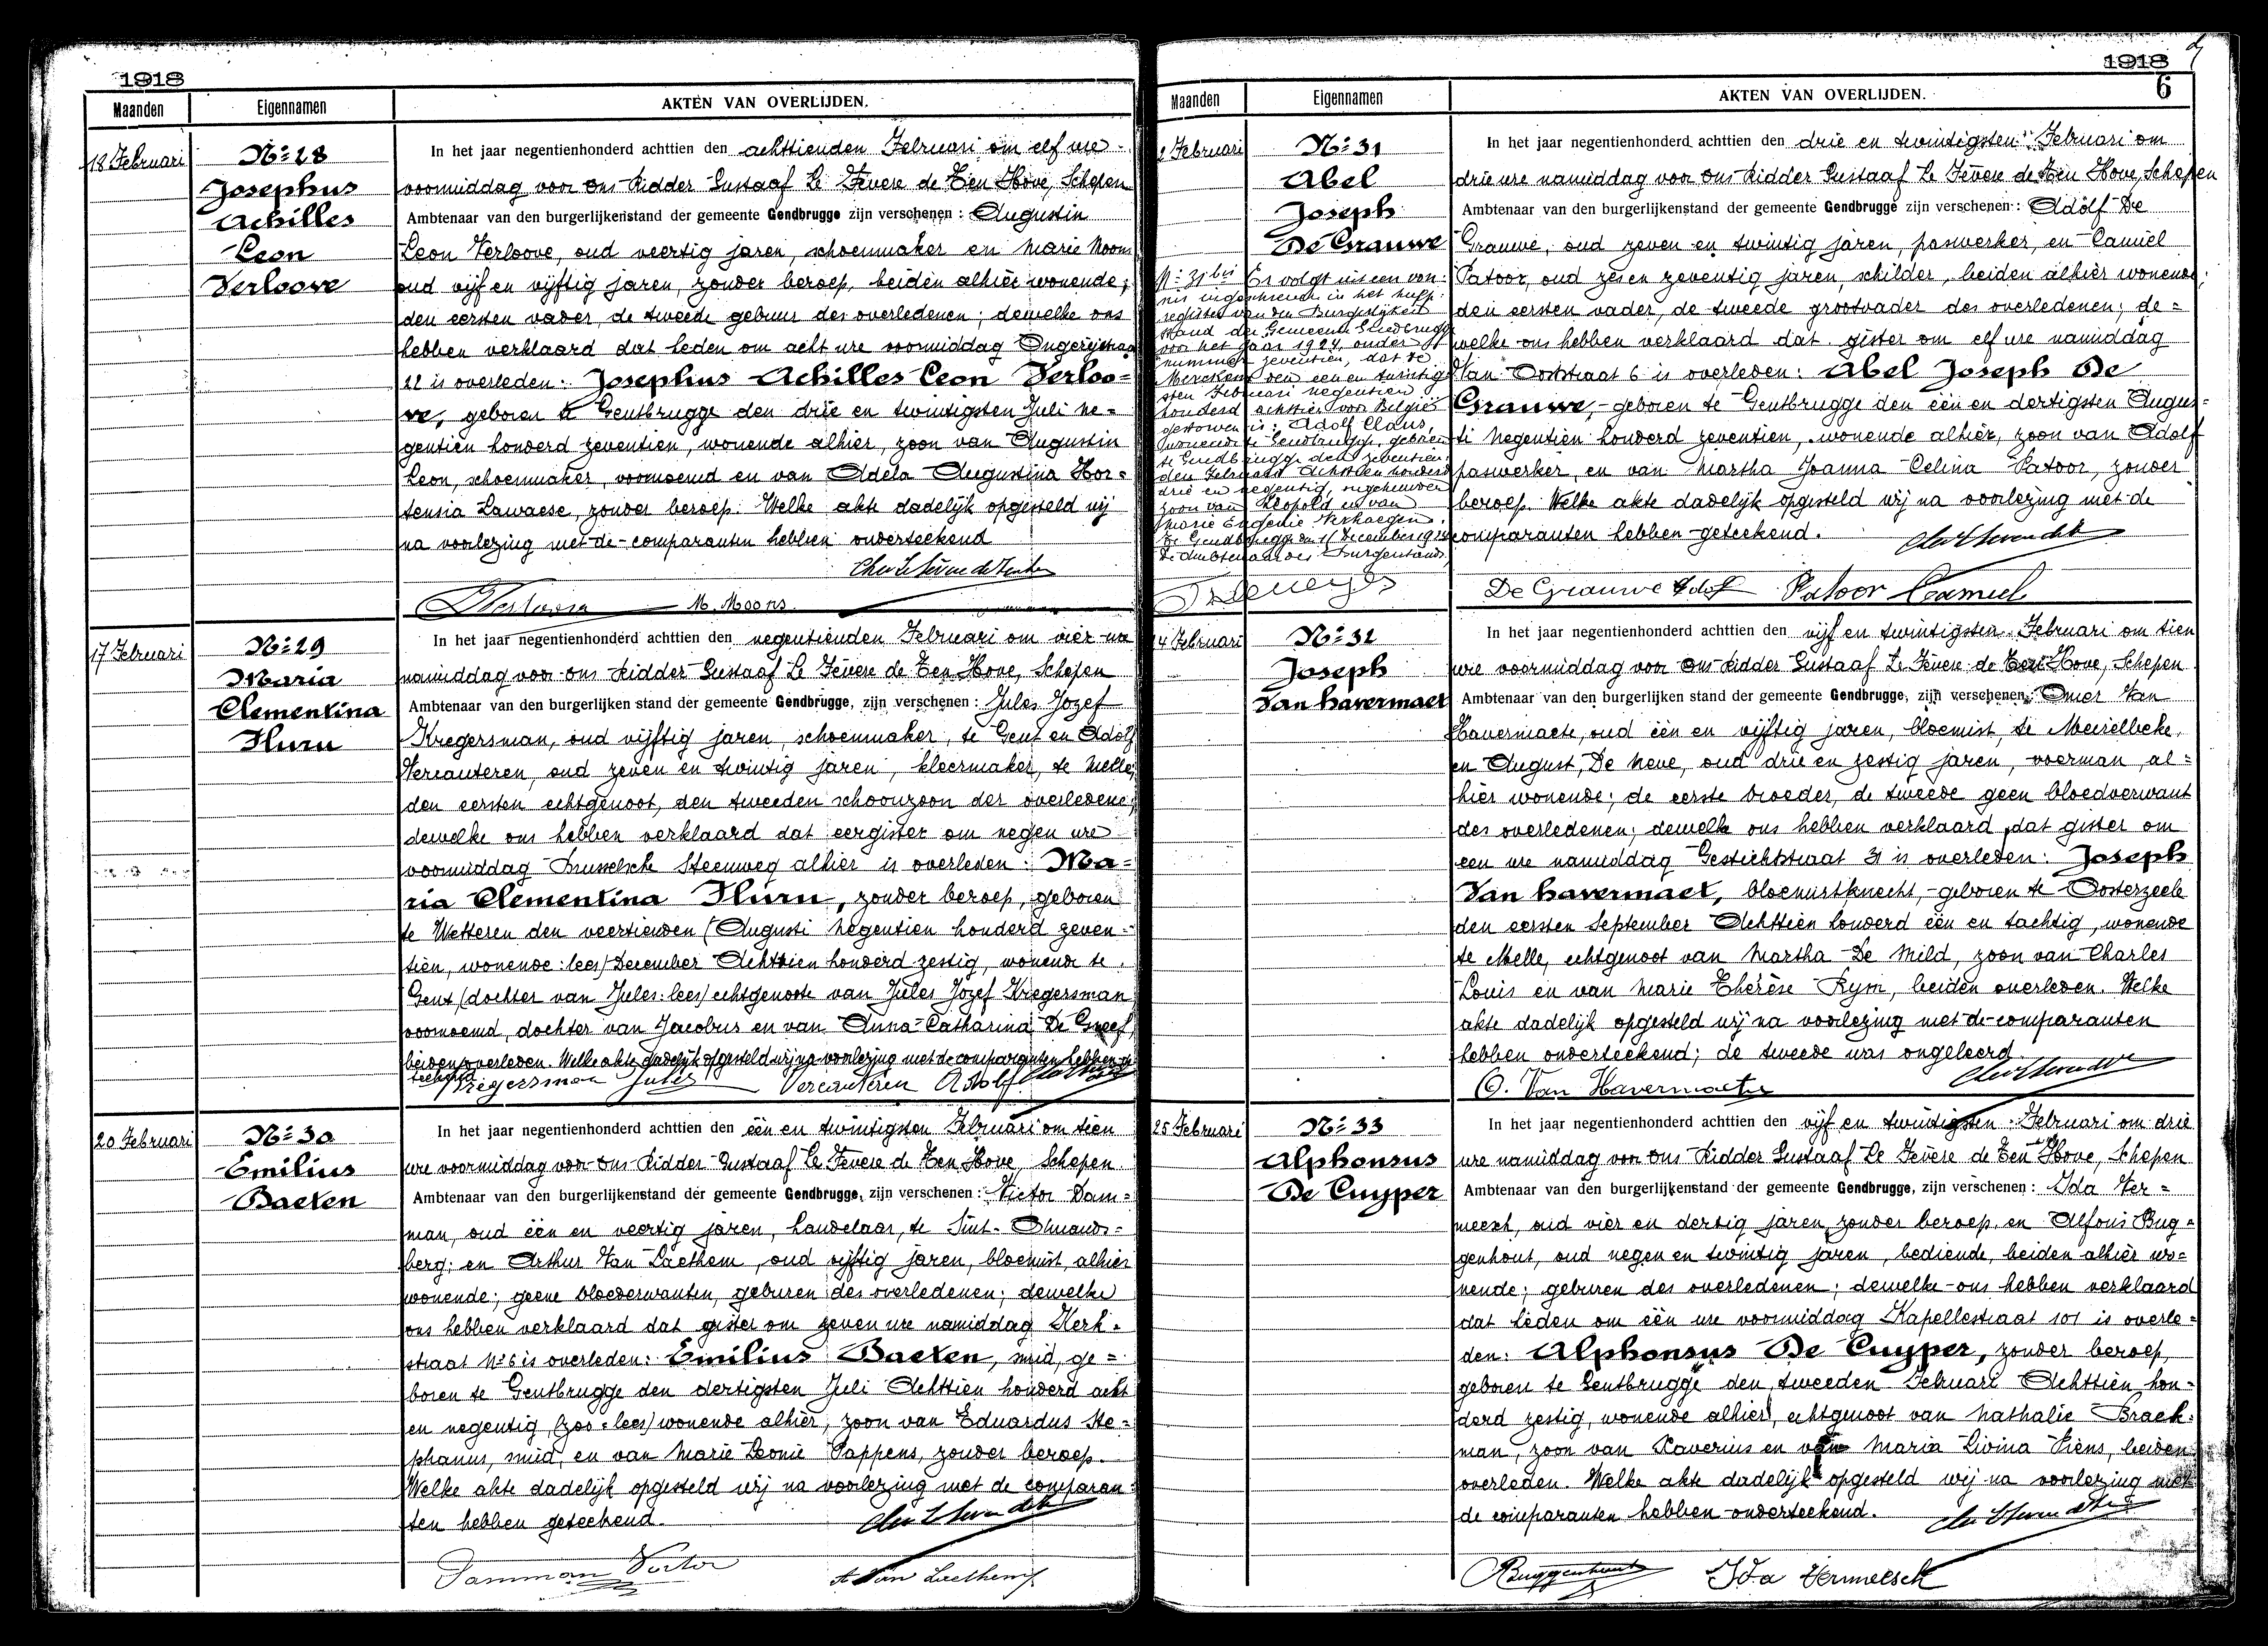 1918
Maanden Eigennamen AKTEN VAN OVERLIJDEN.
18 Februari
Nº 28
Josephus
Achilles
Leon
Verloove
In het jaar negentienhonderd achttien den achttienden Februari om elf ure
voormiddag voor ons Ridder Gustaaf Le Fevere de Ten Hove, Schepen
Ambtenaar van den burgerlijkenstand der gemeente Gendbrugge zijn verschenen : Augustin
Leon Verloove, oud veertig jaren, schoenmaker en Marie Moons
oud vijf en vijftig jaren, zonder beroep, beiden alhier wonende;
den eersten vader, de tweede gebuur des overledenen; dewelke ons
hebben verklaard dat heden om acht ure voormiddag
22 is overleden: Josephus Achilles Leon Verloo=
ve, geboren te Gentbrugge den drie en twintigsten Juli ne=
gentien honderd zeventien, wonende alhier, zoon van Augustin
Leon, schoenmaker, voornoemd en van Adela Augustina Hor=
tensia Lawaese, zonder beroep. Welke akte dadelijk opgesteld wij
na voorlezing met de comparanten hebben onderteekend
M. Moons
17 Februari
Nº 29
Maria
Clementina
Huru
In het jaar negentienhonderd achttien den negentienden Februari om vier ure
namiddag voor ons Ridder Gustaaf Le Fevere de Ten Hove, Schepen
Ambtenaar van den burgerlijken stand der gemeente Gendbrugge, zijn verschenen : Jules Jozef
Kregersman, oud vijftig jaren, schoenmaker, te Gent en Adolf
Vercauteren, oud zeven en twintig jaren, kleermaker, te Melle,
den eersten echtgenoot, den tweeden schoonzoon der overledene;
dewelke ons hebben verklaard dat eergister om negen ure
voormiddag Brusselsche Steenweg alhier is overleden: Ma=
ria Clementina Huru, zonder beroep, geboren
te Wetteren den veertienden (Augusti negentien honderd zeven=
tien, wonende: lees) December Achttien honderd zestig, wonende te
Gent (dochter van Jules: lees) echtgenoote van Jules Jozef Kregersman
voornoemd, dochter van Jacobus en van Anna Catharina De Greef,
beiden overleden. Welke akte dadelijk opgesteld wij na voorlezing met de comparanten hebben ge
teekend
Kregersman Jules Vercauteren Adolf
20 Februari
Nº 30
Emilius
Baeten
In het jaar negentienhonderd achttien den één en twintigsten Februari om tien
ure voormiddag voor ons Ridder Gustaaf Le Fevere de Ten Hove, Schepen
Ambtenaar van den burgerlijkenstand der gemeente Gendbrugge, zijn verschenen : Victor Dam=
man, oud één en veertig jaren, handelaar, te Sint-Amands=
berg; en Arthur Van Laethem, oud vijftig jaren, bloemist, alhier
wonende; geene bloedverwanten, geburen des overledenen; dewelke
ons hebben verklaard dat gister om zeven ure namiddag Kerk=
straat Nº 6 is overleden: Emilius Baeten, smid, ge=
boren te Gentbrugge den dertigsten Juli Achttien honderd acht
en negentig, (zoo: lees) wonende alhier, zoon van Eduardus Ste=
phanus, smid, en van Marie Leonie Pappens, zonder beroep.
Welke akte dadelijk opgesteld wij na voorlezing met de comparan=
ten hebben geteekend.
Damman Victor A. Van Laethem
1918
6
Maanden Eigennamen AKTEN VAN OVERLIJDEN.
2 Februari
Nº 31
Abel
Joseph
De Grauwe
Nº 31 bis Er volgt uit een von:
nis ingeschreven in het hulp
register van den Burgerlijken
stand der Gemeente Gendbrugge
voor het jaar 1924, onder
nummer zeventien, dat te
Merckem den een en twintig
sten Februari negentien
honderd achttien voor België
gestorven is: Adolf Claus,
wonende te Gendbrugge, geboren
te Gendbrugge den zeventien
den Februari Achttien honderd
drie en negentig, ongehuwd
zoon van Leopold en van
Marie Eugenie Verhaegen.
Te Gendbrugge den 11 December 1924
De Ambtenaar des Burgerstands,
In het jaar negentienhonderd achttien den drie en twintigsten Februari om
drie ure namiddag voor ons Ridder Gustaaf Le Fevere de Ten Hove, Schepen
Ambtenaar van den burgerlijkenstand der gemeente Gendbrugge zijn verschenen : Adolf De
Grauwe, oud zeven en twintig jaren, paswerker, en Camiel
Patoor, oud zes en zeventig jaren, schilder, beiden alhier wonende;
den eersten vader, de tweede grootvader des overledenen; de=
welke ons hebben verklaard dat gister om elf ure namiddag
Van Ooststraat 6 is overleden: Abel Joseph De
Grauwe, geboren te Gentbrugge den één en dertigsten Augus=
ti negentien honderd zeventien, wonende alhier, zoon van Adolf
paswerker, en van Martha Joanna Celina Patoor, zonder
beroep. Welke akte dadelijk opgesteld wij na voorlezing met de
comparanten hebben geteekend.
De Grauwe Adolf Patoor Camiel
24 Februari
Nº 32
Joseph
Van havermaet
In het jaar negentienhonderd achttien den vijf en twintigsten Februari om tien
ure voormiddag voor ons Ridder Gustaaf Le Fevere de Ten Hove, Schepen
Ambtenaar van den burgerlijken stand der gemeente Gendbrugge, zijn verschenen : Omer Van
Havermaete, oud één en vijftig jaren, bloemist, te Meirelbeke,
en August De Neve, oud drie en zestig jaren, voerman, al=
hier wonende; de eerste broeder, de tweede geen bloedverwant
des overledenen; dewelke ons hebben verklaard dat gister om
een ure namiddag Gestichtstraat 31 is overleden: Joseph
Van havermaet, bloemistknecht, geboren te Oosterzeele
den eersten September Achttien honderd één en tachtig, wonende
te Melle, echtgenoot van Martha De Mild, zoon van Charles
Louis en van Marie Thérèse Rym, beiden overleden. Welke
akte dadelijk opgesteld wij na voorlezing met de comparanten
hebben onderteekend; de tweede was ongeleerd.
O. Van Havermaete
25 Februari
Nº 33
Alphonsus
De Cuyper
In het jaar negentienhonderd achttien den vijf en twintigsten Februari om drie
ure namiddag voor ons Ridder Gustaaf Le Fevere de Ten Hove, Schepen
Ambtenaar van den burgerlijkenstand der gemeente Gendbrugge, zijn verschenen : Ida Ver=
meesch, oud vier en dertig jaren, zonder beroep, en Alfons Bug=
genhout, oud negen en twintig jaren, bediende, beiden alhier wo=
nende; geburen des overledenen; dewelke ons hebben verklaard
dat heden om één ure voormiddag Kapellestraat 101 is overle=
den: Alphonsus De Cuyper, zonder beroep,
geboren te Gentbrugge den tweeden Februari Achttien hon=
derd zestig, wonende alhier, echtgenoot van Nathalie Braek=
man, zoon van Xaverius en van Maria Livina Piens, beiden
overleden. Welke akte dadelijk opgesteld wij na voorlezing met
de comparanten hebben onderteekend.
Buggenhout Ida Vermeesch